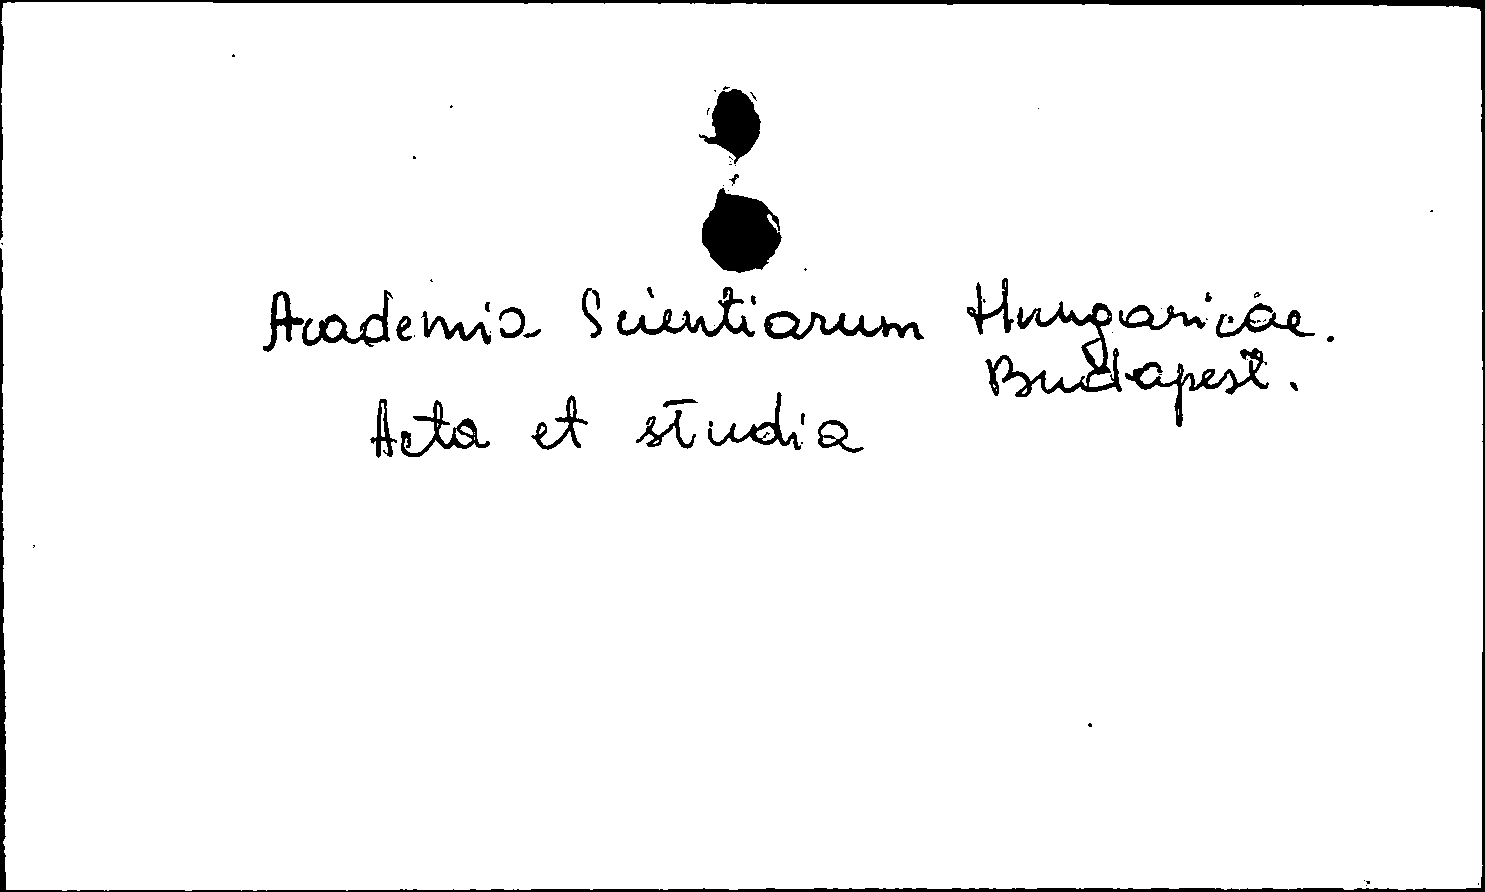 Academia Scientiarum Hungaricae.
Budapest.
Acta et studia